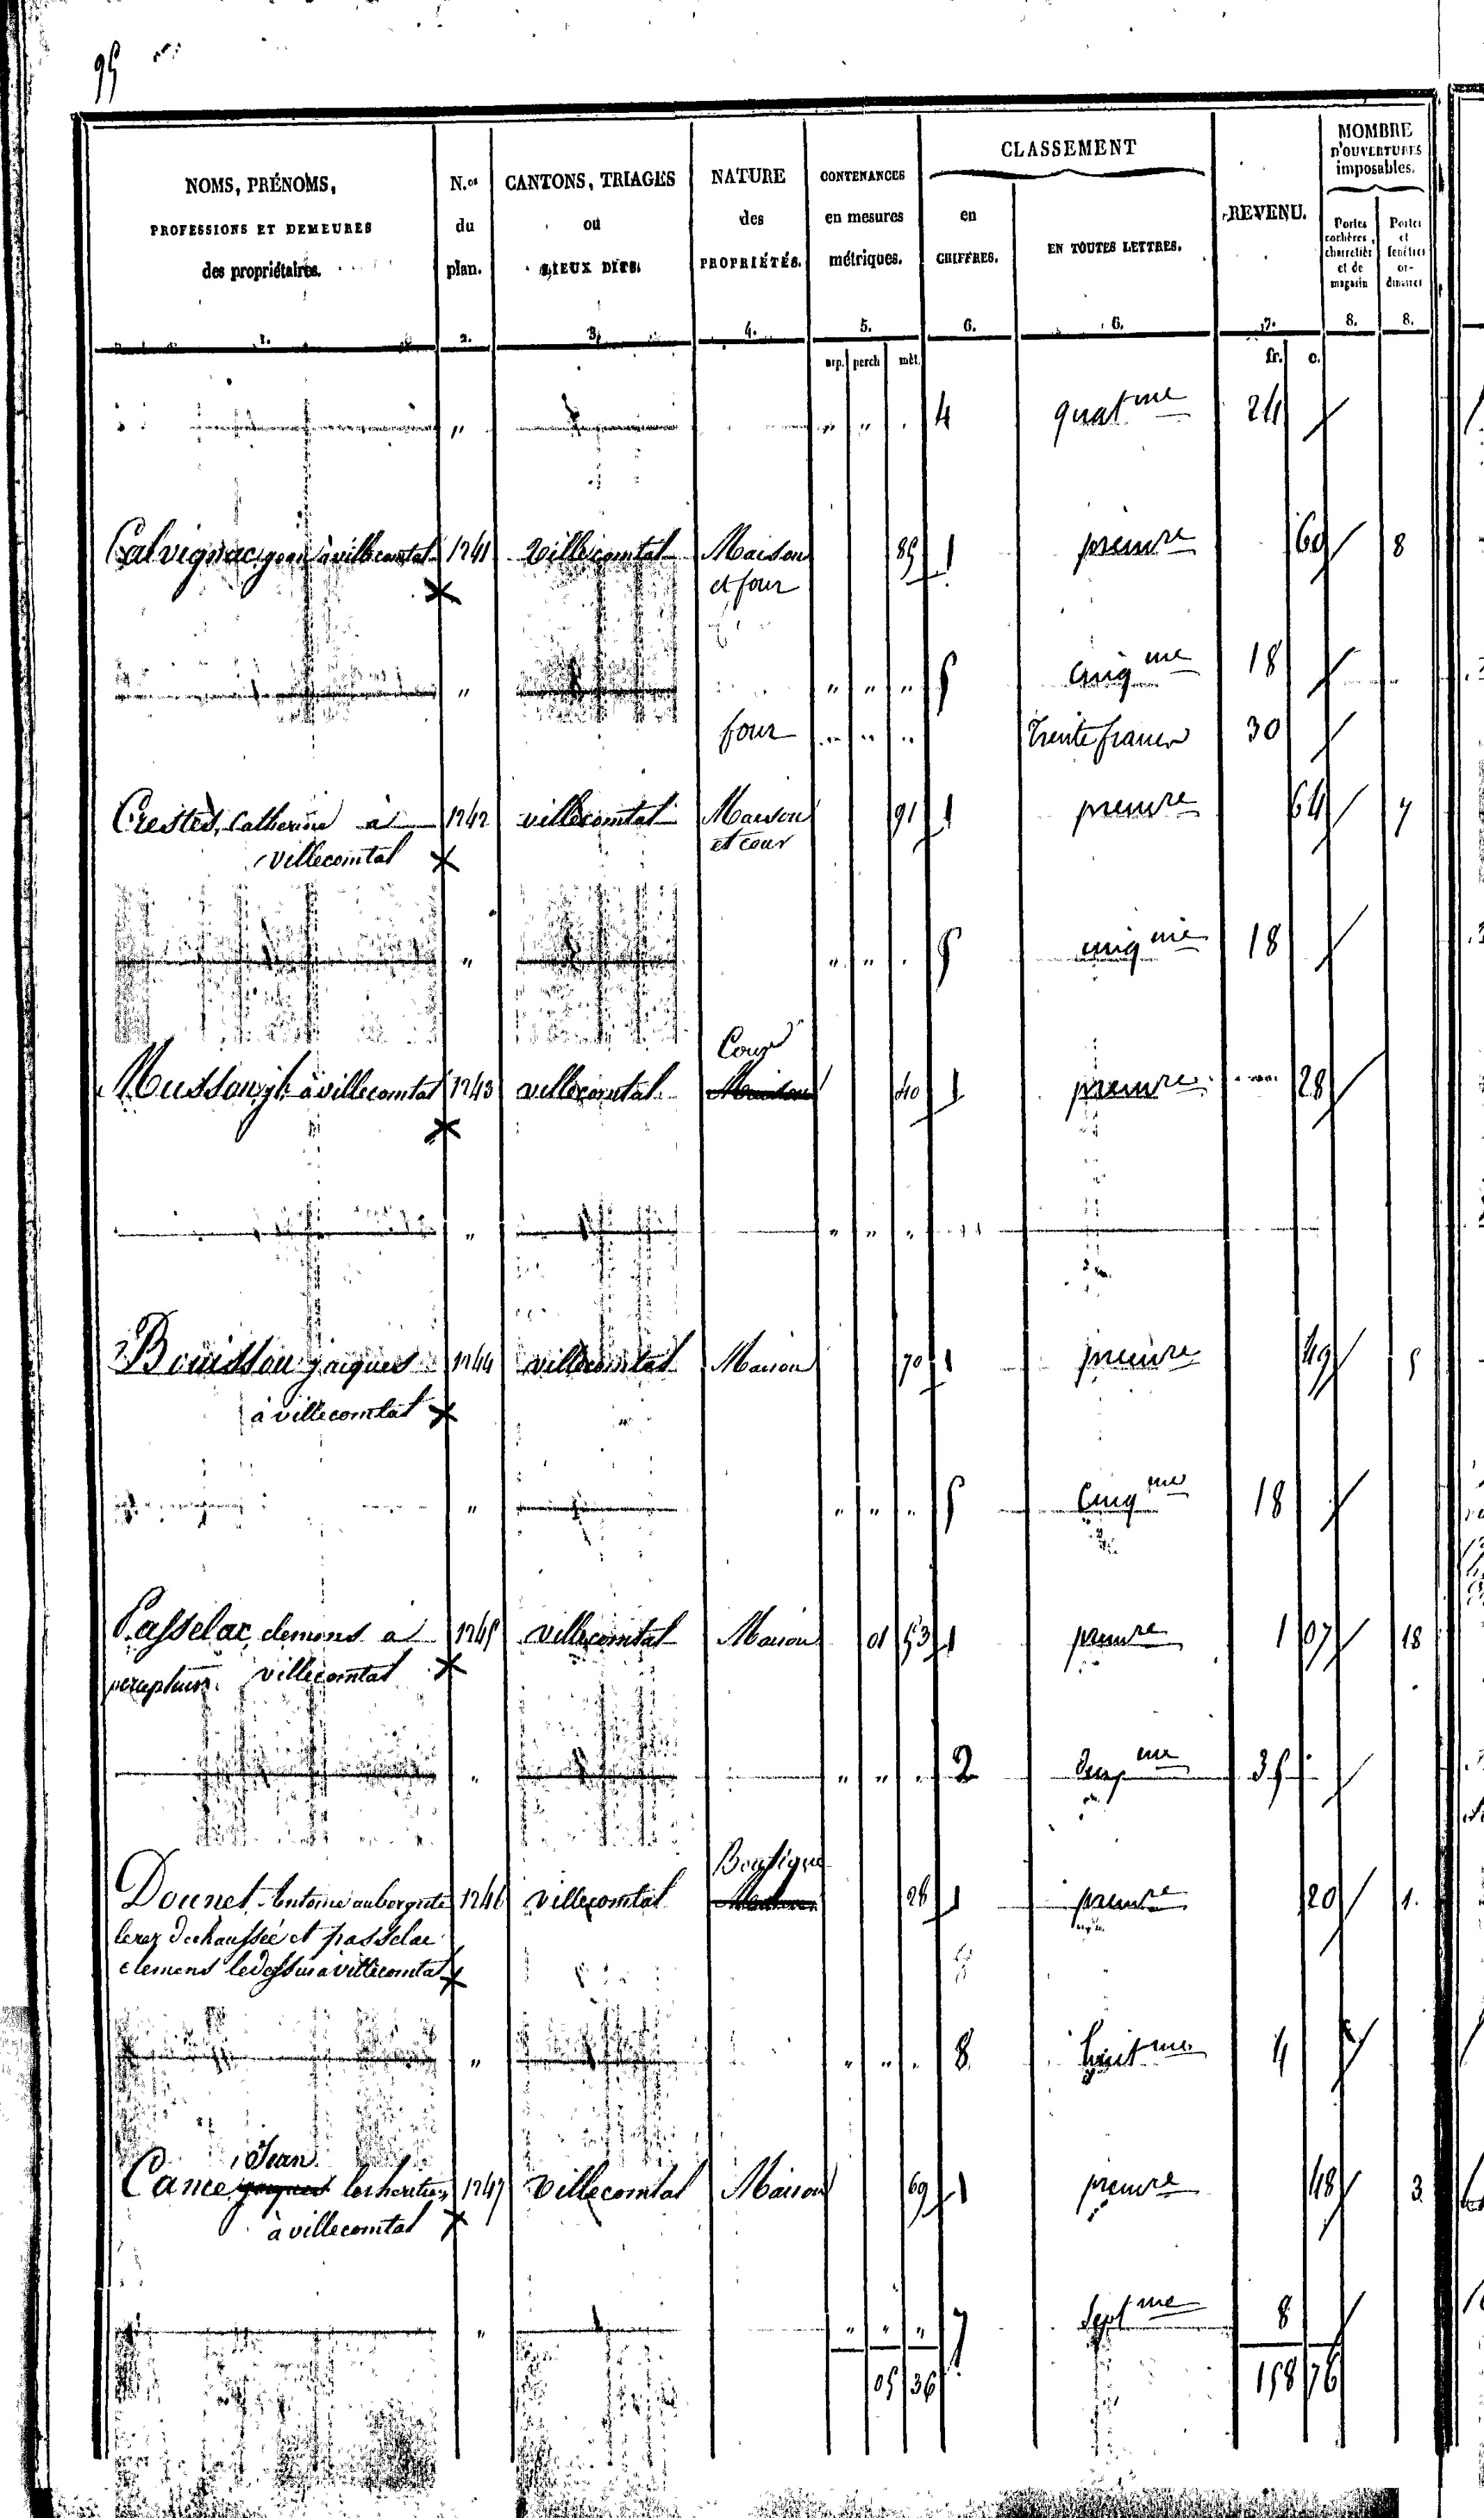 95
NOMS, PRÉNOMS, PROFESSIONS ET DEMEURES des propriétaires. 1.
N.os du plan. 2.
CANTONS, TRIAGES ou LIEUX DITS. 3.
NATURE des PROPRIÉTÉS. 4.
CONTENANCES en mesures métriques. 5.
CLASSEMENT
en CHIFFRES. 6.
EN TOUTES LETTRES. 6.
REVENU. 7.
NOMBRE D'OUVERTURES imposables.
Portes cochères, charretières et de magasin 8.
Portes et fenêtres ordinaires 8.
arp. perch mèt. fr. c.
" " " 4 quatme 24
Calvignac jean à villecomtal 1241 Villecomtal Maison 85 1 premre 60 8
et four
" " " " 5 cinqme 18
four " " " Trente francs 30
Crestes, Catherine à 1242 villecomtal Maison 91 1 premre 64 7
villecomtal et cour
" " " 5 cinqme 18
Cour
à villecomtal 1243 villecomtal Maison 40 1 premre 28
" " " "
Bouisson jacques 1244 villecomtal Maison 70 1 premre 49 5
à villecomtal
" " " " 5 Cinqme 18
Passelac, clemens à 1245 villecomtal Maison 01 53 1 premre 1 07 18
villecomtal
" " " " 2 deuxme 35
Boutique
Dounet Antoine aubergiste 1246 villecomtal Maison 28 1 premre 20 1
le rez de chaussée et passelac
clemens le dessus à villecomtal
" " " " 8 huitme 4
Jean
Cance jacques les heritiers 1247 Villecomtal Maison 69 1 premre 48 3
à villecomtal
" " " " 7 septme 8
05 36 158 76